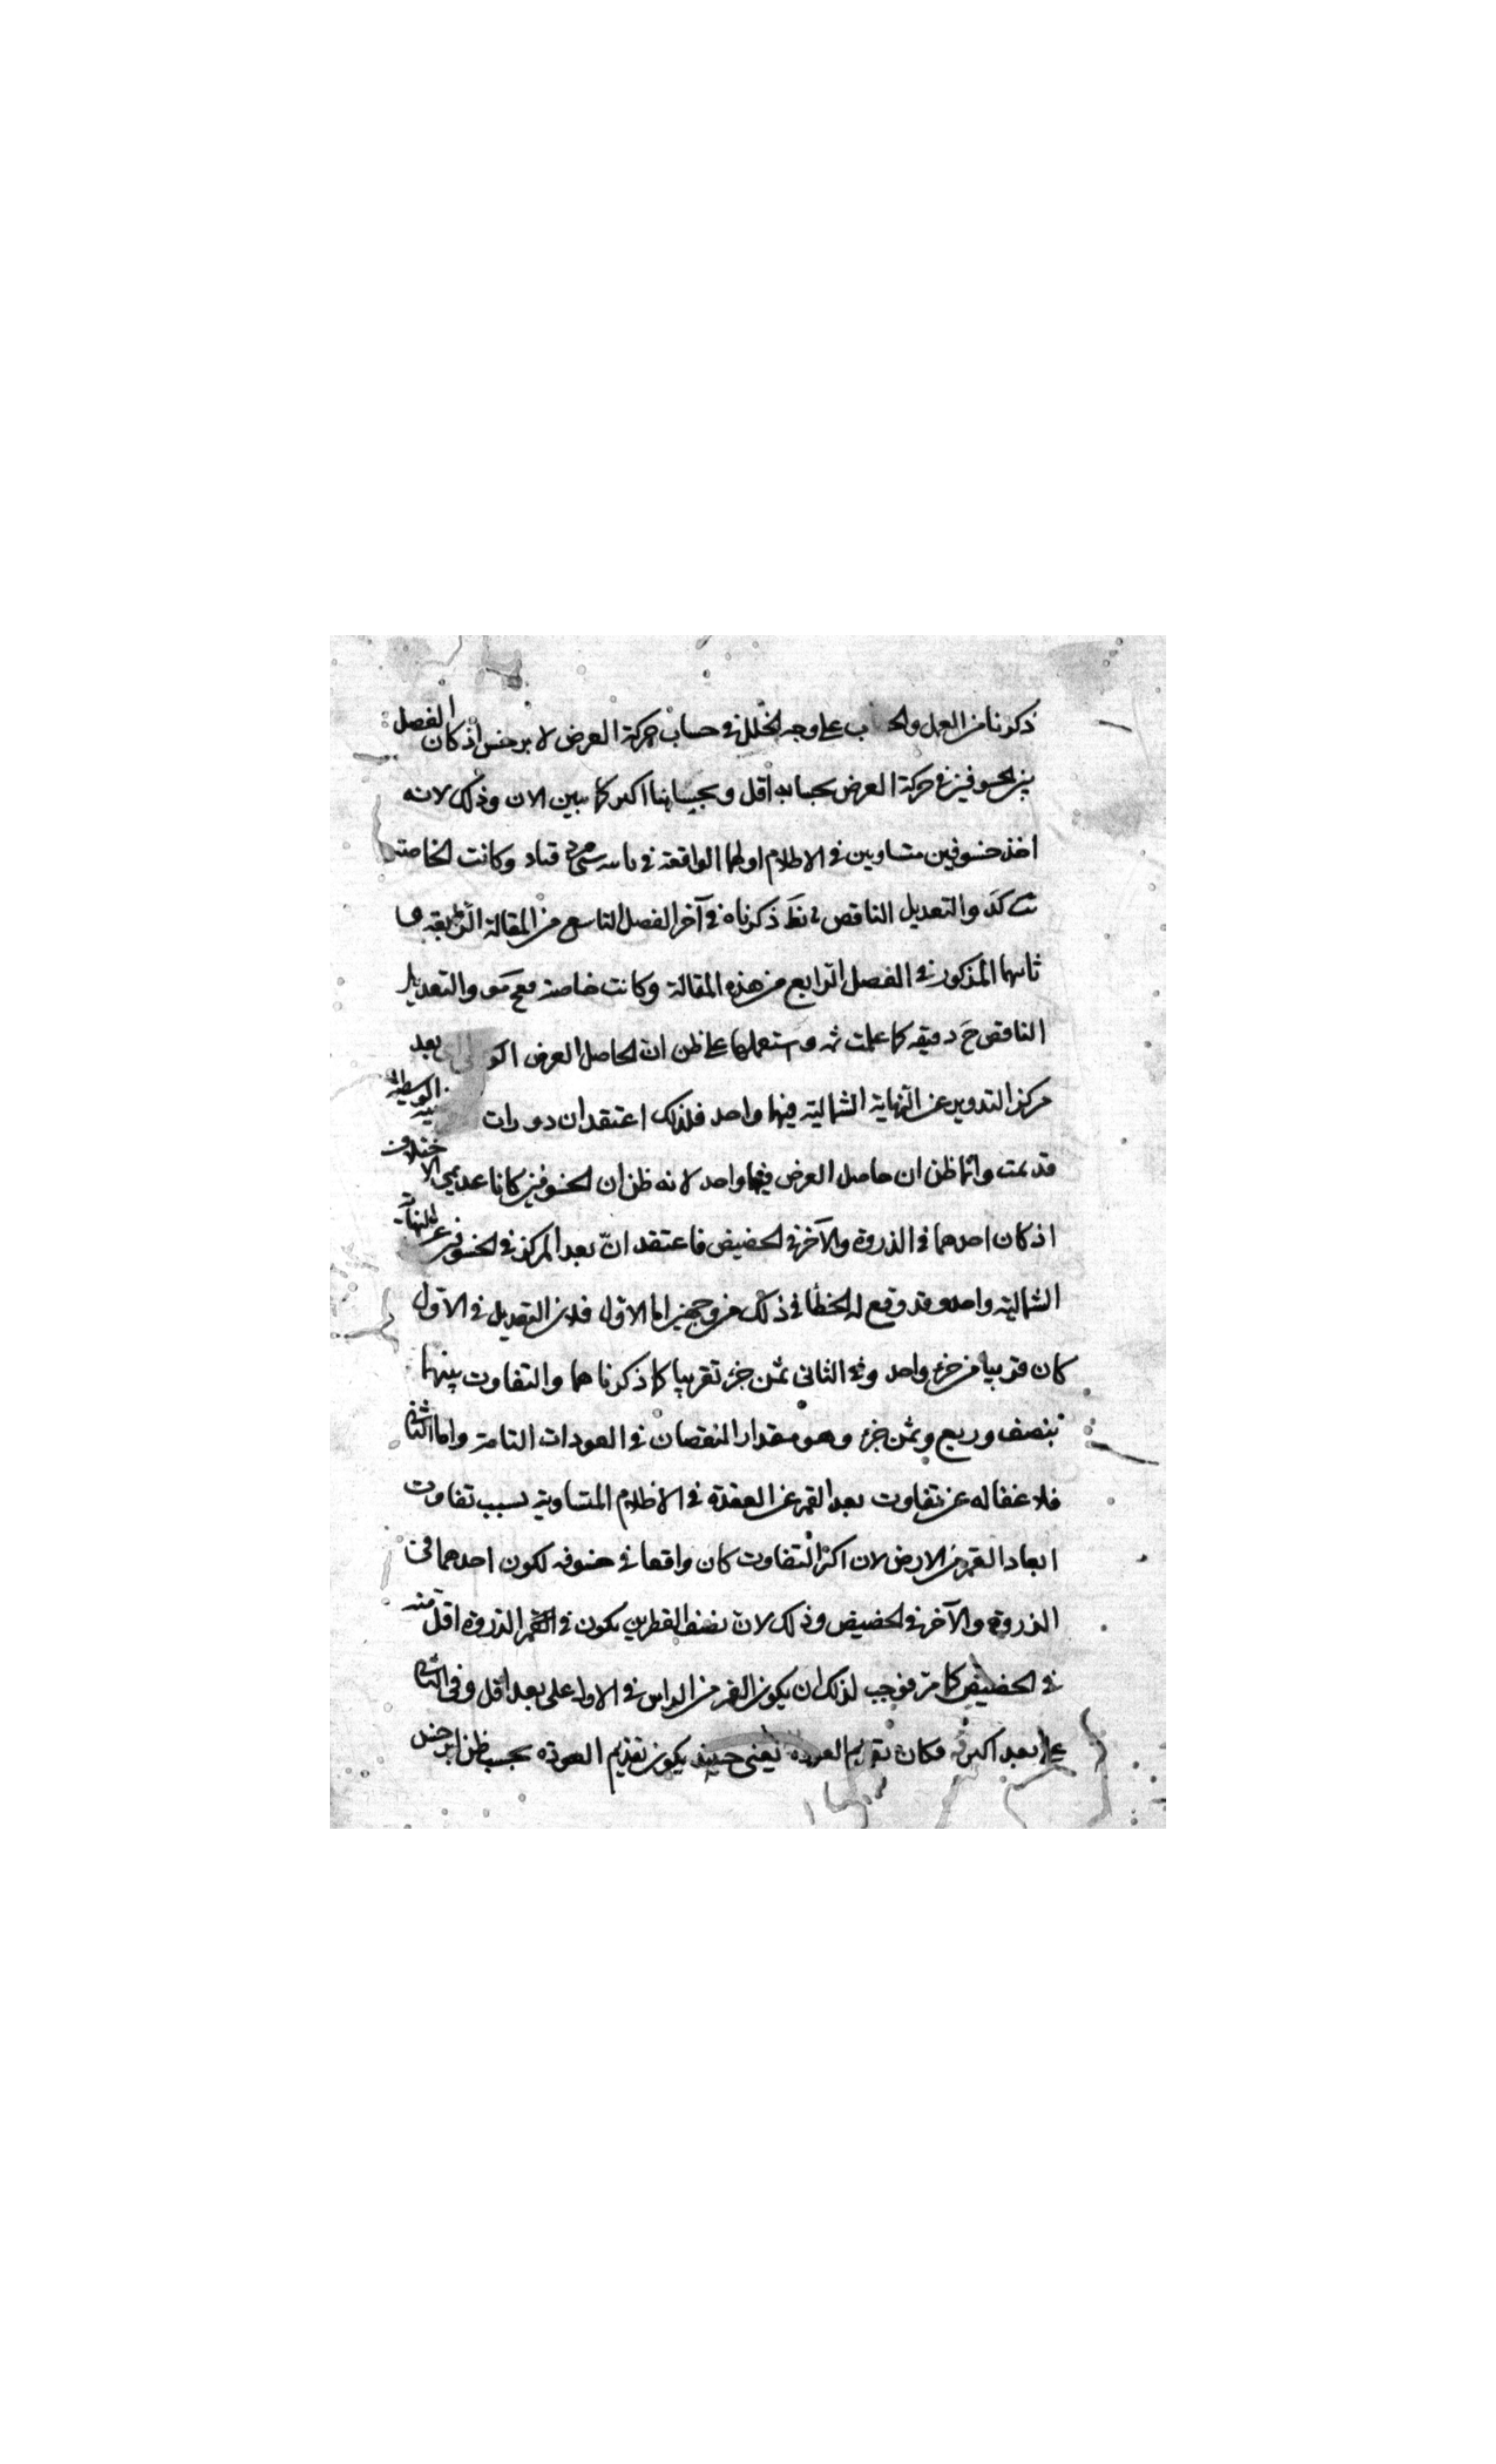 ذكرنا من العمل والحساب على وجه الخلل في حساب حركة العرض لابرخس اذ كان الفصل
بين الخسوفين في حركة العرض بحسابه اقل وبحسابنا اكثر كما يبين الان وذلك لانه
اخذ خسوفين متساويين في الاظلام اولهما الواقعة في قباد وكانت الخاصة
والتعديل الناقص نط ذكرناه في آخر الفصل التاسع من المقالة
المذكور في الفصل الرابع من هذه المقالة وكانت خاصة والتعديل
الناقص ح دقيقه كما علمت ثمه واستعملهما على ظن ان الحاصل العرض بعد
مركز التدوير عن النهاية الشمالية فيهما واحد فلذلك اعتقد ان دورات
قد تمت وانما ظن ان حاصل العرض فيهما واحد لانه ظن ان الخسوفين كانا عديمي الاختلاف
اذ كان احدهما في الذروة والآخر في الحضيض فاعتقد انّ بعد المركز في الخسوفين عن النهاية
الشمالية واحد وقد وقع له الخطأ في ذلك من وجهين اما الاوّل فلان التعديل في الاوّل
كان قريبا من جزء واحد وفي الثاني ثمن جزء تقريبا كما ذكرناهما والتفاوت بينهما
بنصف وربع وثمن جزء وهو مقدار النقصان في العودات التامة واما الثاني
فلاغفاله عن تفاوت بعد القمر عن العقدة في الاظلام المتساوية بسبب تفاوت
ابعاد القمر من الارض لان اكثر التفاوت كان واقعا في خسوفه لكون احدهما في
الذروة والآخر في الحضيض وذلك لانّ نصف القطرين يكون في الذروة اقل منه
في الحضيض كما مرّ فوجب لذلك ان يكون القمر من الراس في الاول على بعد اقل وفي الثاني
على بعد اكثر فكان تقديم العودة يعني حينئذ يكون تقديم العودة بحسب ظن ابرخس